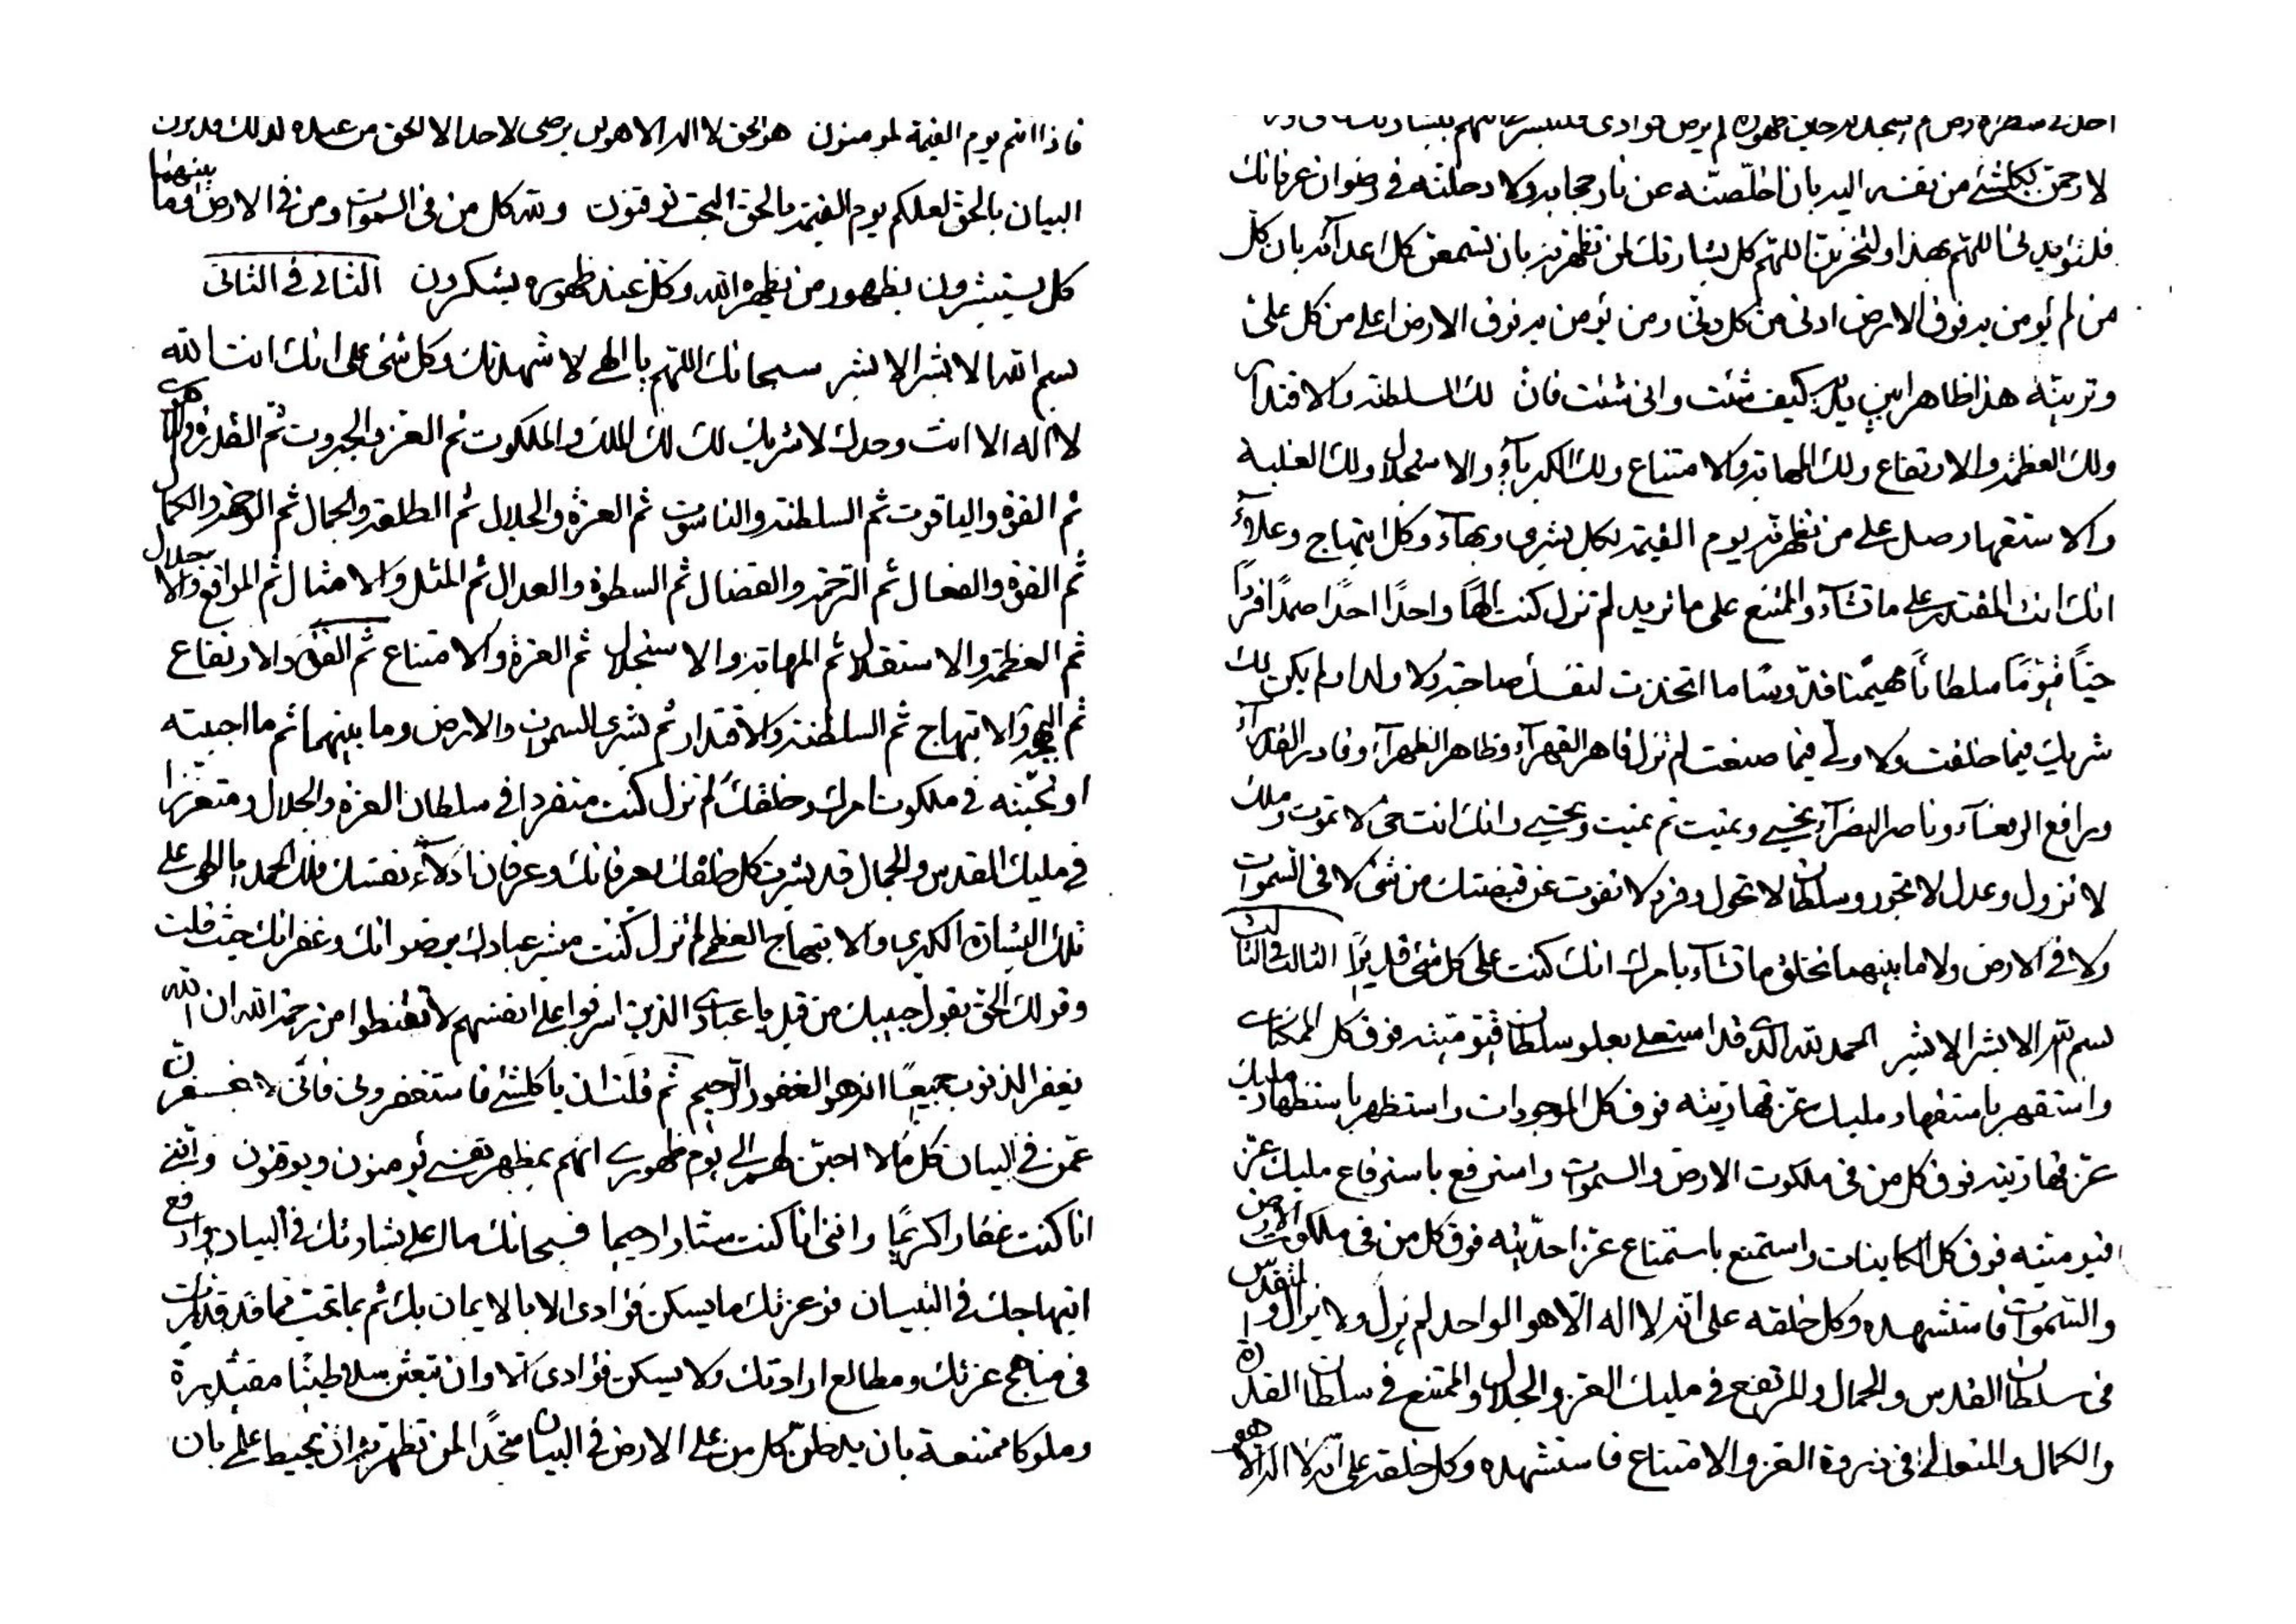 فاذا انتم يوم القيمة لمؤمنون هو الحق لا اله الا هو لن يرضى لاحد الا الحق من عنده لذلك قد نزل
البيان بالحق لعلكم يوم القيمة بالحق البحت توقنون ولله كل من في السموات ومن في الارض وما بينهما
كل يستبشرون بظهور من يظهره الله وكل عند ظهوره يشكرون الثاني في الثاني
بسم الله الابشر الابشر سبحانك اللهم يا الهي لاشهدنك وكل شئ على انك انت الله
لا اله الا انت وحدك لا شريك لك لك الملك والملكوت ثم العز والجبروت ثم القدرة واللاهوت
ثم القوة والياقوت ثم السلطنة والناسوت ثم العزة والجلال ثم الطلعة والجمال ثم الوجهة والكمال
ثم القوة والفعال ثم الرحمة والفضال ثم السطوة والعدال ثم المثل والامثال ثم المواقع والاجلال
ثم العظمة والاستقلال ثم المهابة والاستجلال ثم العزة والامتناع ثم القوة والارتفاع
ثم البهجة والابتهاج ثم السلطنة والاقتدار ثم بشرى السموات والارض وما بينهما ثم ما احببته
او تحبنه في ملكوت امرك وخلقك لم تزل كنت متفردا في سلطان العزة والجلال ومتعززا
في مليك القدس والجمال قد بشرت كل خلقك بعرفانك وعرفان ادلاء نفسك فلك الحمد يا الهي على
تلك البشارة الكبرى والابتهاج العظمى لم تزل كنت مبشر عبادك برضوانك وغفرانك حيث قلت
وقولك الحق بقول حبيبك من قبل يا عبادي الذين اسرفوا على انفسهم لا تقنطوا من رحمة الله ان الله
يغفر الذنوب جميعا انه هو الغفور الرحيم ثم قلت ان يا كلشئ فاستغفروني فانني لاغفرن
عمن في البيان كل ما لا احبن لهم الى يوم ظهوري انهم بمظهر نفسي يؤمنون ويوقنون وانني
انا كنت غفارا كريما وانني انا كنت ستارا رحيما فسبحانك ما اعلى بشارتك في البيان وارفع
ابتهاجك في التبيان فوعزتك ما يسكن فؤادي الا بالايمان بك ثم بما تحب مما قد قدرت
في مناهج عزتك ومطالع ارادتك ولا يسكن فؤادي الا وان تبعثن سلاطينا مقتدرة
وملوكا ممتنعة بان يدخلن كل من على الارض في البيان متخذا لمن تظهرنه ان يحيط علم بان
لم يسجد له حين ظهوره لم يرض فؤادي
لارحمن بكلشئ من نفسه اليه بان اخلصنه عن نار حجابه ولادخلنه في رضوان عرفانك
فلتؤيدني اللهم بهذا ولتخزنن اللهم كل بشارتك لمن تظهرنه بان تسمعن كل اعدائه بان كل
من لم يؤمن به فوق الارض ادنى من كل دني ومن يؤمن به فوق الارض اعلى من كل علي
وترينه هذا ظاهرا بين يديه كيف شئت وانى شئت فان لك السلطنة والاقتدار
ولك العظمة والارتفاع ولك المهابة والامتناع ولك الكبرياء والاستجلال ولك الغلبة
والاستقهار وصل على من تظهرنه يوم القيمة بكل بشرى وبهاء وكل ابتهاج وعلاء
انك انت المقتدر على ما تشاء والممتنع على ما تريد لم تزل كنت الها واحدا احدا صمدا فردا
حيا قيوما سلطانا مهيمنا قدوسا ما اتخذت لنفسك صاحبة ولا ولدا ولم يكن لك
شريك فيما خلقت ولا ولي فيما صنعت لم تزل قاهر القهراء وظاهر الظهراء وقادر القدراء
ورافع الرفعاء وناصر النصراء تحيي وتميت ثم تميت وتحيي وانك انت حي لا تموت وملك
لا تزول وعدل لا تجور وسلطان لا تحول وفرد لا تفوت عن قبضتك من شئ لا في السموات
ولا في الارض ولا ما بينهما تخلق ما تشاء بامرك انك كنت على كل شئ قديرا الثالث في الثالث
بسم الله الابشر الابشر الحمد لله الذي قد استعلى بعلو سلطان قيوميته فوق كل الممكنات
واستقهر باستقهار مليك عز قهاريته فوق كل الموجودات واستظهر باستظهار مليك
عز قهاريته فوق كل من في ملكوت الارض والسموات واسترفع باسترفاع مليك عز
قيوميته فوق كل الكاينات واستمنع باستمناع عز احديته فوق كل من في ملكوت الارض
والسموات فاستشهده وكل خلقه على انه لا اله الا هو الواحد لم يزل ولا يزال المتقدس
في سلطان القدس والجمال والمرتفع في مليك العز والجلال والممتنع في سلطان القدرة
والكمال والمتعالي في ذروة العز والامتناع فاستشهده وكل خلقه على انه لا اله الا هو